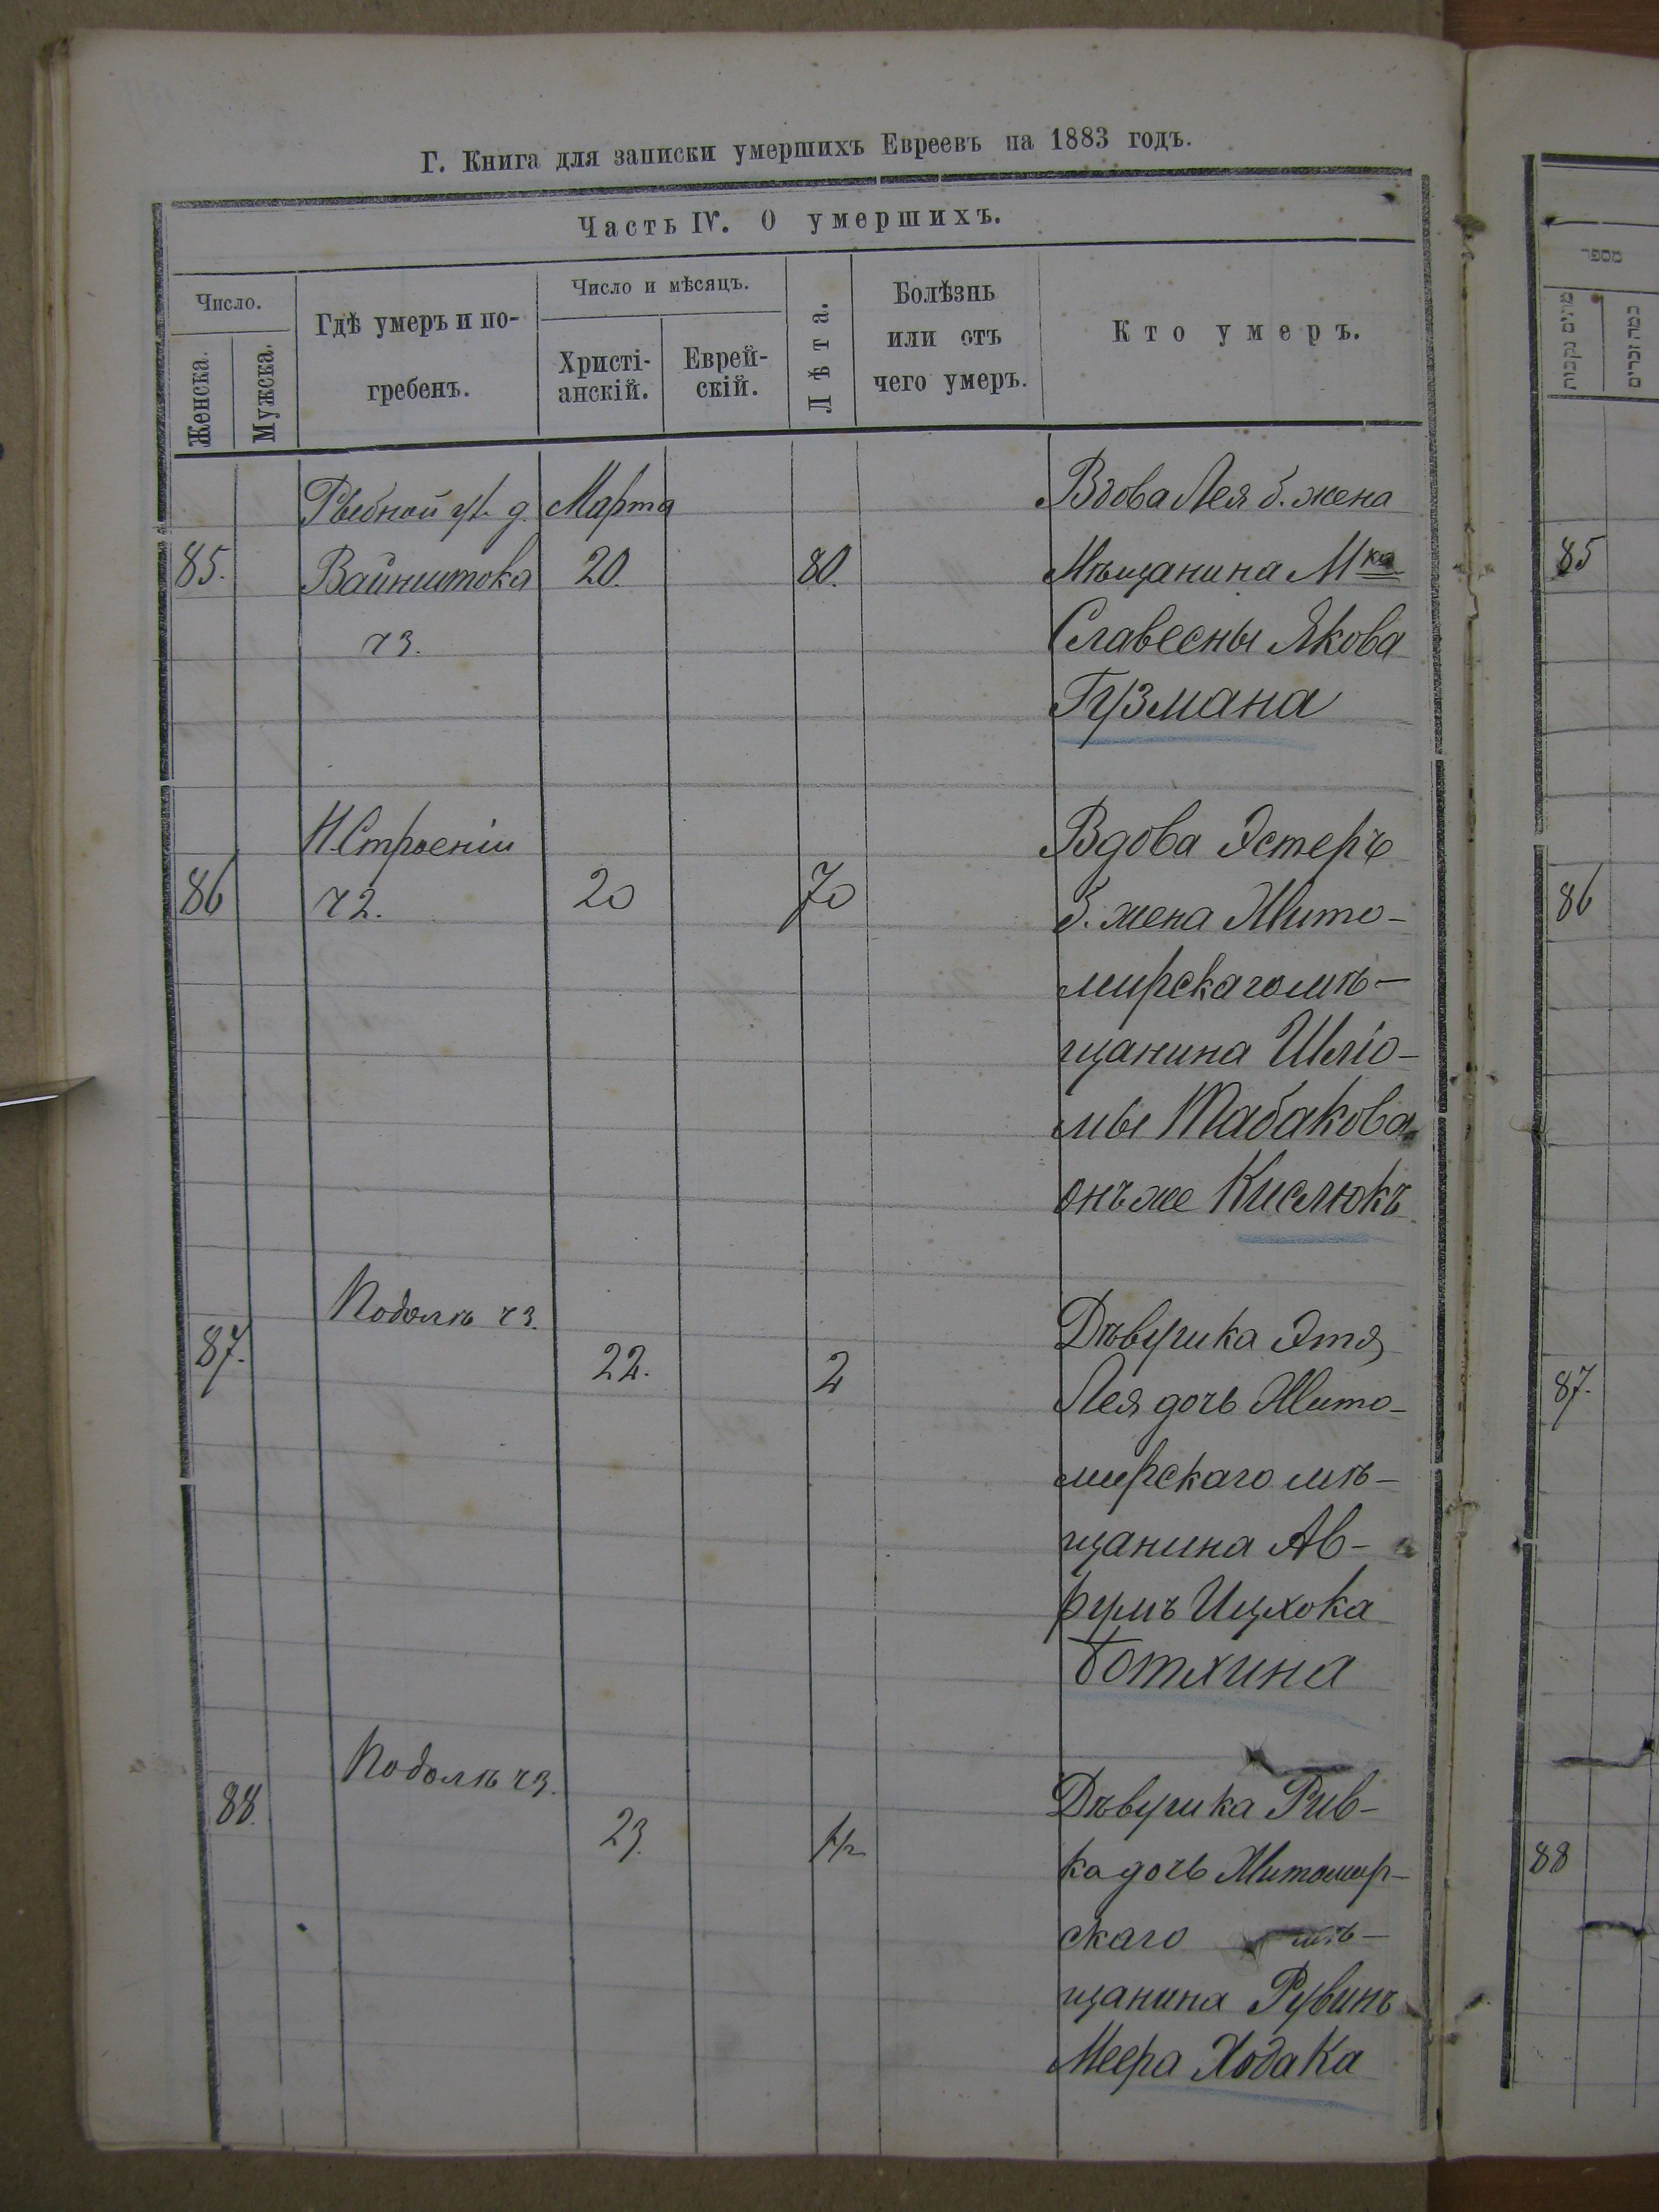 Г. Книга для записки умершихъ Евреевъ на 1883 годъ.
Часть IV. О умершихъ.
Число.
Женска.
Мужска.
Гдѣ умеръ и по-
гребенъ.
Число и мѣсяцъ.
Христі-
анскій.
Еврей-
скій.
Лѣта.
Болѣзнь
или отъ
чего умеръ.
Кто умеръ.
85.
Рыбной ул. д.
Вайнштока
ч 3.
Марта
20.
80.
Вдова Лея б. жена
Мѣщанина Мка
Славесны Якова
Гузмана
86
Н. Строеніи
ч 2.
20
70
Вдова Эстеръ
б. жена Жито-
мирскаго мѣ-
щанина Шліо-
мы Табакова
онъ же Кислюкъ
87.
Подолѣ ч 3.
22.
2
Дѣвушка Этя
Лея дочь Жито-
мирскаго мѣ-
щанина Ав-
румъ Ицхока
Ботхина
88.
Подолѣ ч 3.
23.
1/2
Дѣвушка Рив-
ка дочь Житомир-
скаго мѣ-
щанина Рувинъ
Меера Ходака
מספר
מתים נקבות
כמה זכרים
85
86
87.
88